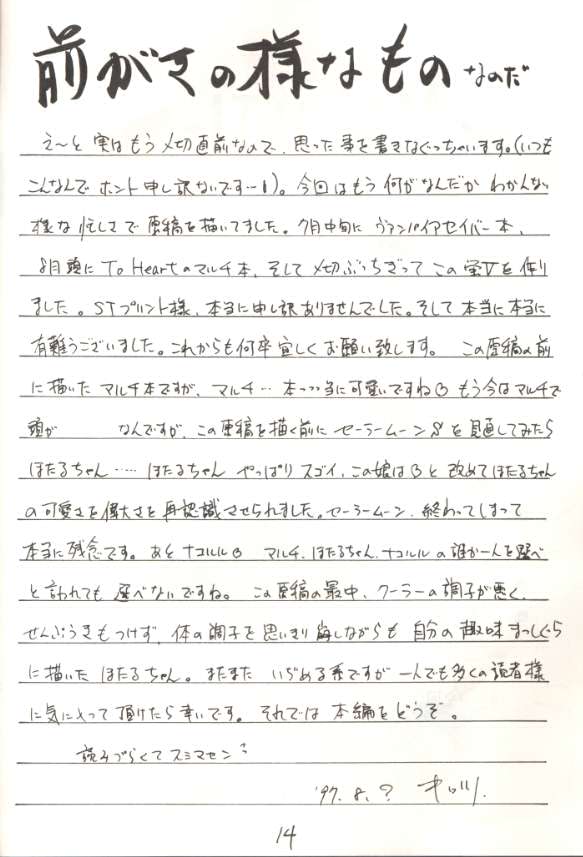 前がきの様なもの なのだ
え〜と 実はもう〆切直前なので、思った事を書きなぐっちゃいます。(いつも
こんなんで ホント申し訳ないです…!)。今回はもう 何がなんだか わかんない
様な忙しさで原稿を描いてました。7月中旬に ヴァンパイアセイバー本、
8月頭に To Heartのマルチ本、そして〆切ぶっちぎって この蛍Vを作り
ました。STプリント様、本当に申し訳ありませんでした。そして 本当に本当に
有難うございました。これからも何卒宜しくお願い致します。 この原稿の前
に描いた マルチ本ですが、マルチ… 本っっ当に可愛いですね もう今はマルチで
頭が なんですが、この原稿を描く前に セーラームーンSを見直してみたら
ほたるちゃん…… ほたるちゃん やっぱり スゴイ、この娘は と 改めてほたるちゃん
の可愛さを偉大さを再認識させられました。セーラームーン、終わってしまって
本当に残念です。あと ナコルル マルチ、ほたるちゃん、ナコルルの誰か一人を選べ
と言われても 選べないですね。 この原稿の最中、クーラーの調子が悪く、
せんぷうきもつけず、体の調子を思いきり崩しながらも 自分の趣味まっしぐら
に描いた ほたるちゃん。またまた いぢめる系ですが 一人でも多くの読者様
に気に入って頂けたら幸いです。それでは 本編をどうぞ。
読みづらくてスミマセン
'97. 8. ?
14